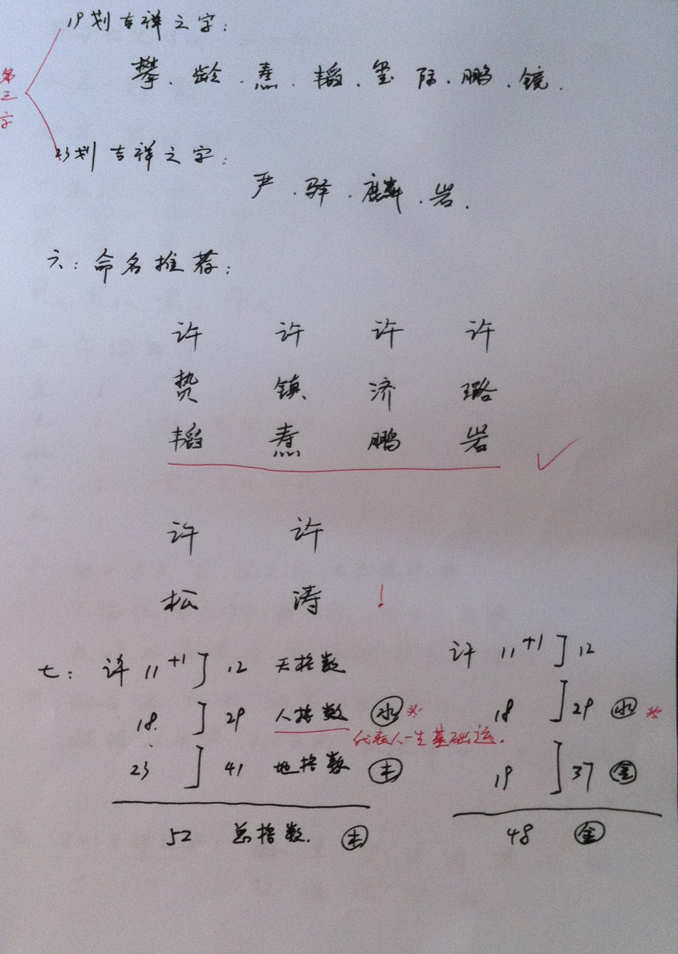 19划吉祥之字:
攀.龄.焘.韬.玺.际.鹏.镜.
第三字
23划吉祥之字:
严.驿.麟.岩.
六:命名推荐:
许 许 许 许
贽 镇 济 璐
韬 焘 鹏 岩
许 许
松 涛 !
七: 许 11+1 ] 12 天格数
18. ] 29 人格数 水 ※
代表人一生基础运.
23 ] 41 地格数 木
52 总格数. 木
许 11+1 ] 12
18 ] 29 水 ※
19 ] 37 金
48 金